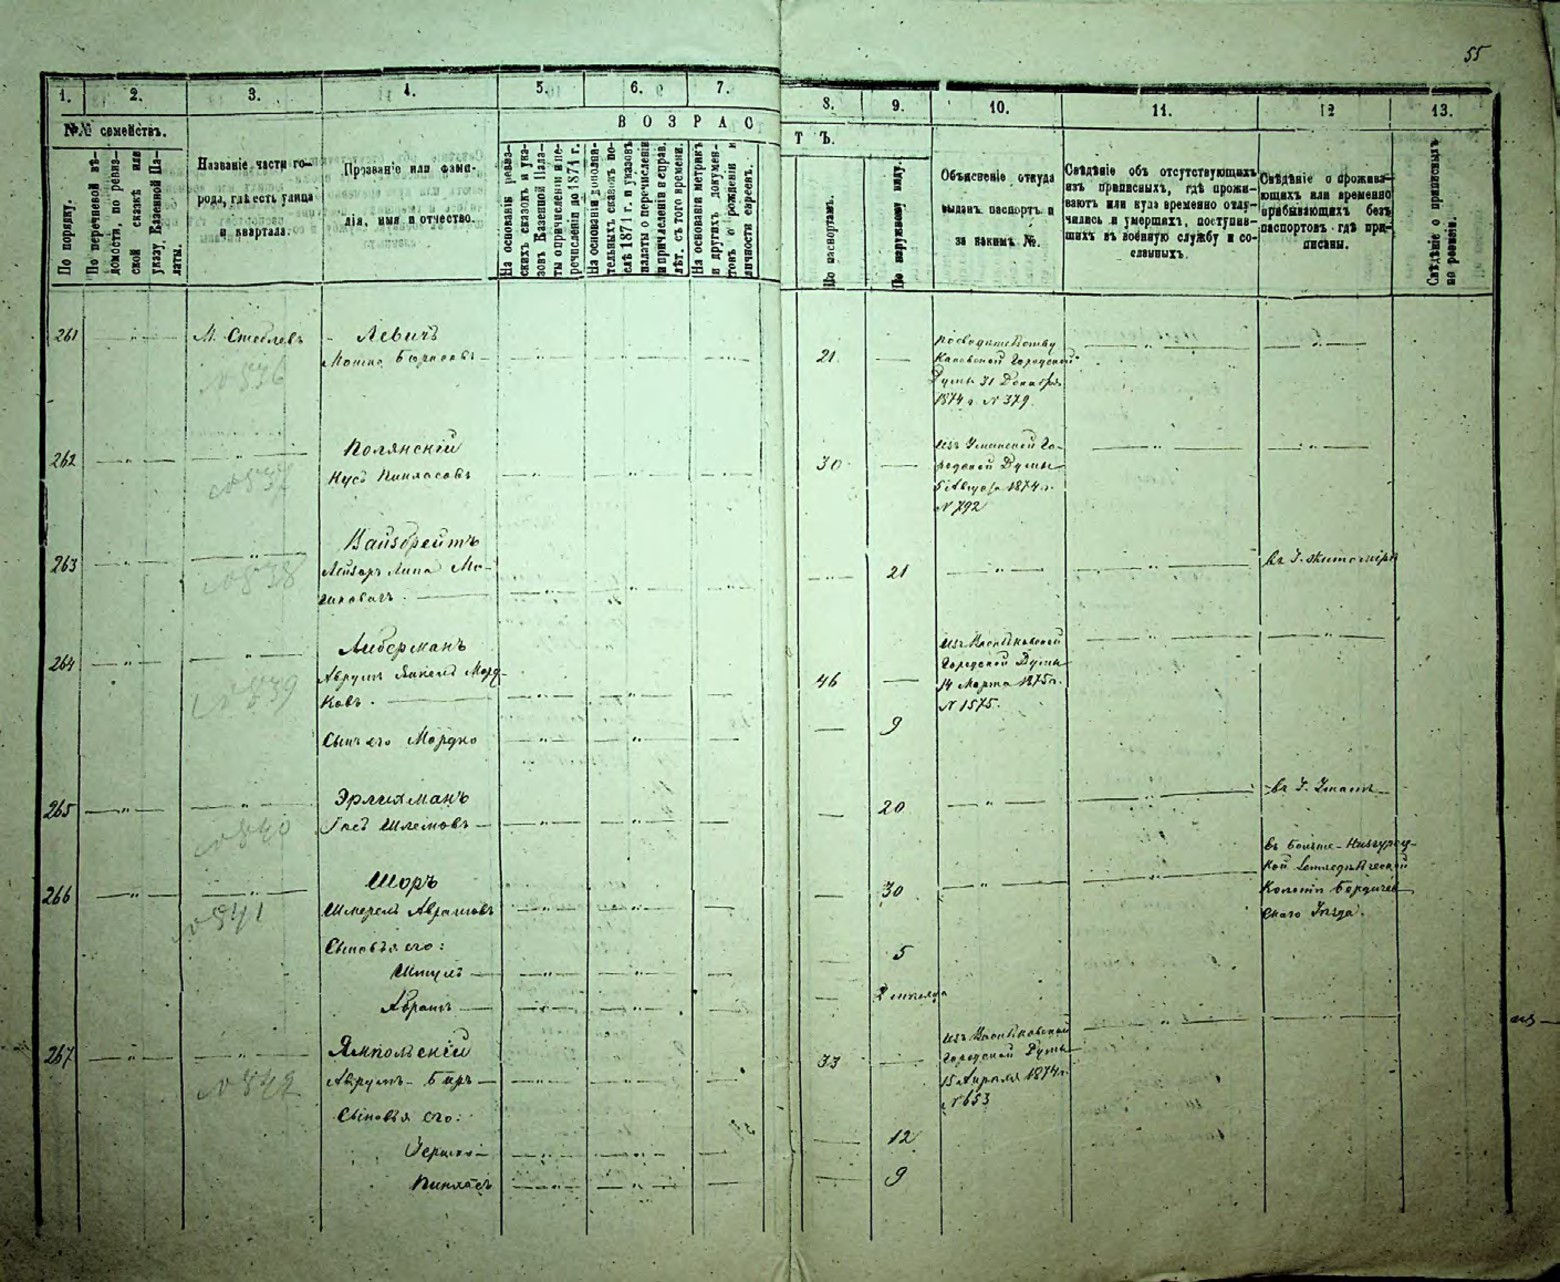 55
1. 2. 3. 4. 5. 6. 7. 8. 9. 10. 11. 12 13.
№№ семействъ.
ВОЗРАСТЪ.
По порядку.
По перечневой вѣ-
домости, по ревиз-
ской сказкѣ или
указу Казенной Па-
латы.
Названіе части го-
рода, гдѣ есть улица
и квартала.
Прозваніе или фами-
лія, имя и отчество.
На основаніи ревиз-
скихъ сказокъ и ука-
зовъ Казенной Пала-
ты о причисленіи и пе-
речисленіи до 1871 г.
На основаніи дополни-
тельныхъ сказокъ по-
слѣ 1871 г. и указовъ
палаты о перечисленіи
и причисленіи и справ.
лѣт. съ того времени.
На основаніи метрикъ
и другихъ докумен-
товъ о рожденіи и
личности евреевъ.
По паспортамъ.
По наружному виду.
Объясненіе откуда
выданъ паспортъ и
за какимъ №.
Свѣдѣніе объ отсутствующихъ
изъ приписныхъ, гдѣ прожи-
ваютъ или куда временно отлу-
чились и умершихъ, поступив-
шихъ въ военную службу и со-
сланныхъ.
Свѣдѣніе о прожива-
ющихъ или временно
прибывающихъ безъ
паспортовъ гдѣ при-
писаны.
Свѣдѣніе о приписныхъ
по ревизіи.
261 М. Стеблевъ Левичъ
Мошко 21
Каневской Городской
Думы 31 Декабря
1874 г. № 379
№ 836
262 Полянскій
Нусъ Пинхасовъ 30
Изъ Уманской Го-
родской Думы
5 Августа 1874 г.
№ 792
№ 837
263 Вайзбрейтъ
Лейзоръ Липа Мо-
21 въ Г. Житомирѣ
№ 838
264 Либерманъ
Аврумъ Янкель Морд-
ковъ 46
Изъ Васильковской
Городской Думы
14 Марта 1875 г.
№ 1575.
№ 839
Сынъ его Мордко 9
265 Эрлихманъ
Гось Шлемовъ 20 въ Г. Умани
№ 840
266 Шоръ
Шмерель Аврамовъ 30
Колоніи Бердичев-
скаго Уѣзда.
№ 841
Сыновья его: 5
Шмулъ
Аврамъ 2
267 Ямпольскій
Аврумъ-Беръ 33
Изъ Васильковской
Городской Думы
15 Апрѣля 1874 г.
№ 653
№ 842
Сыновья его:
Гершко 12
Пинхасъ 9